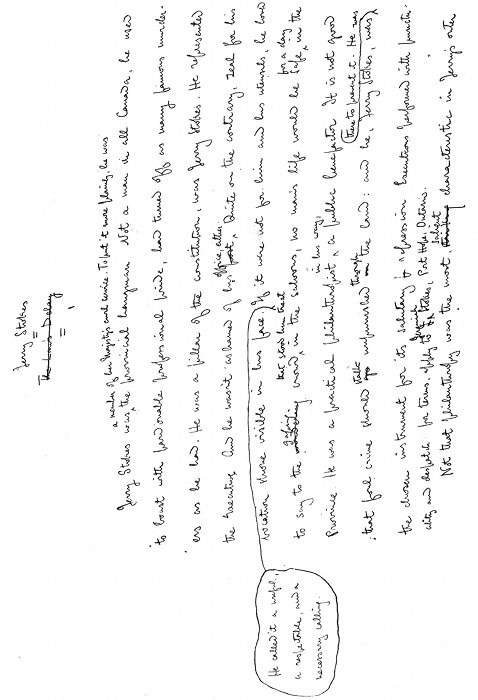 Jerry Stokes
The Law's Delay
a member of her Majesty's civil service. To put it more plainly, he was
Jerry Stokes was the provincial hangman. Not a man in all Canada, he used
to boast with pardonable professional pride, had turned off as many famous murder-
ers as he had. He was a pillar of the constitution, was Jerry Stokes. He represented
the Executive. And he wasn't ashamed of his office, either. Quite on the contrary, zeal for his
vocation shone visible in his face. If it were not for him and his utensils, he loved
to say to the gaping crowd that stood him treat in the saloons, no man's life would be safe for a day in the
Province. He was a practical philanthropist in his way, a public benefactor. It is not good
that foul crime should stalk unpunished through the land: and he, Jerry Stokes, was there to prevent it. He was
the chosen instrument for its salutary repression. Executions performed with punctu-
ality and despatch: for terms, apply to Stokes, Port Hope, Ontario.
Not that philanthropy was the most salient characteristic in Jerry's outer
He called it a useful,
a respectable, and a
necessary calling.